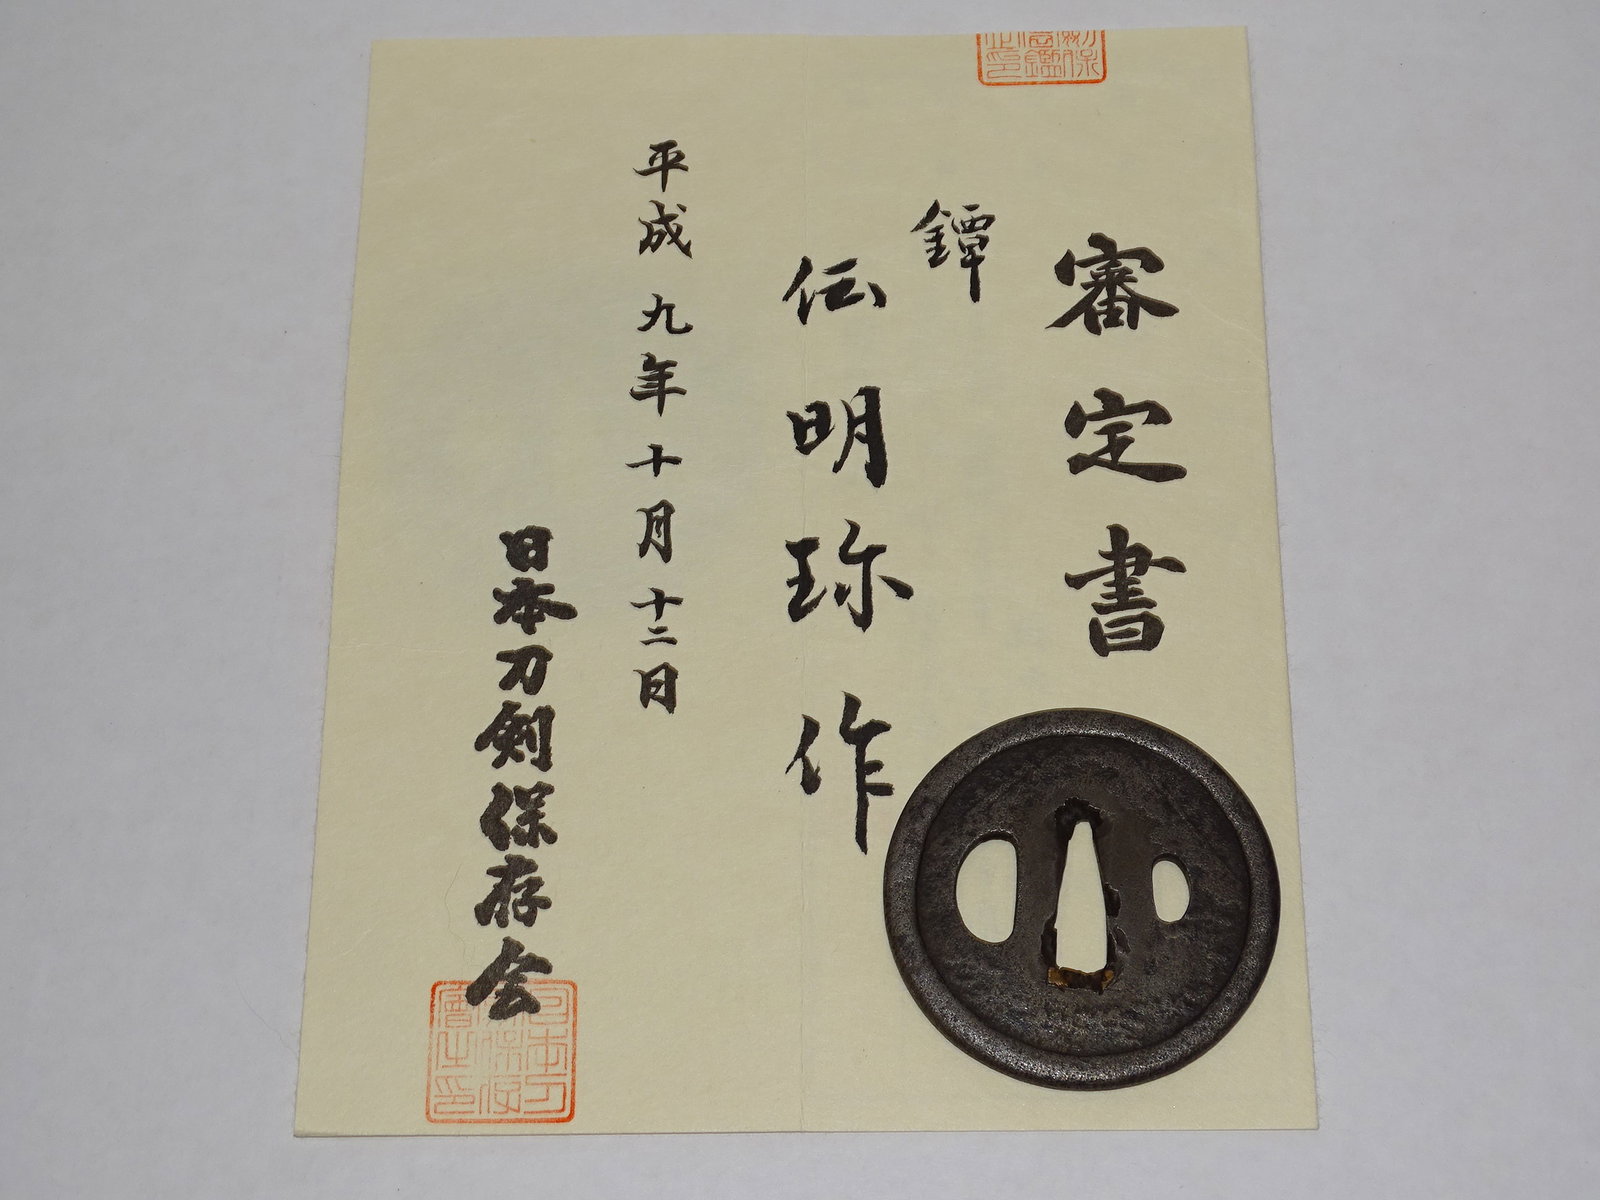 審定書
鐔
伝明珎作
平成九年十月十二日
日本刀剣保存会